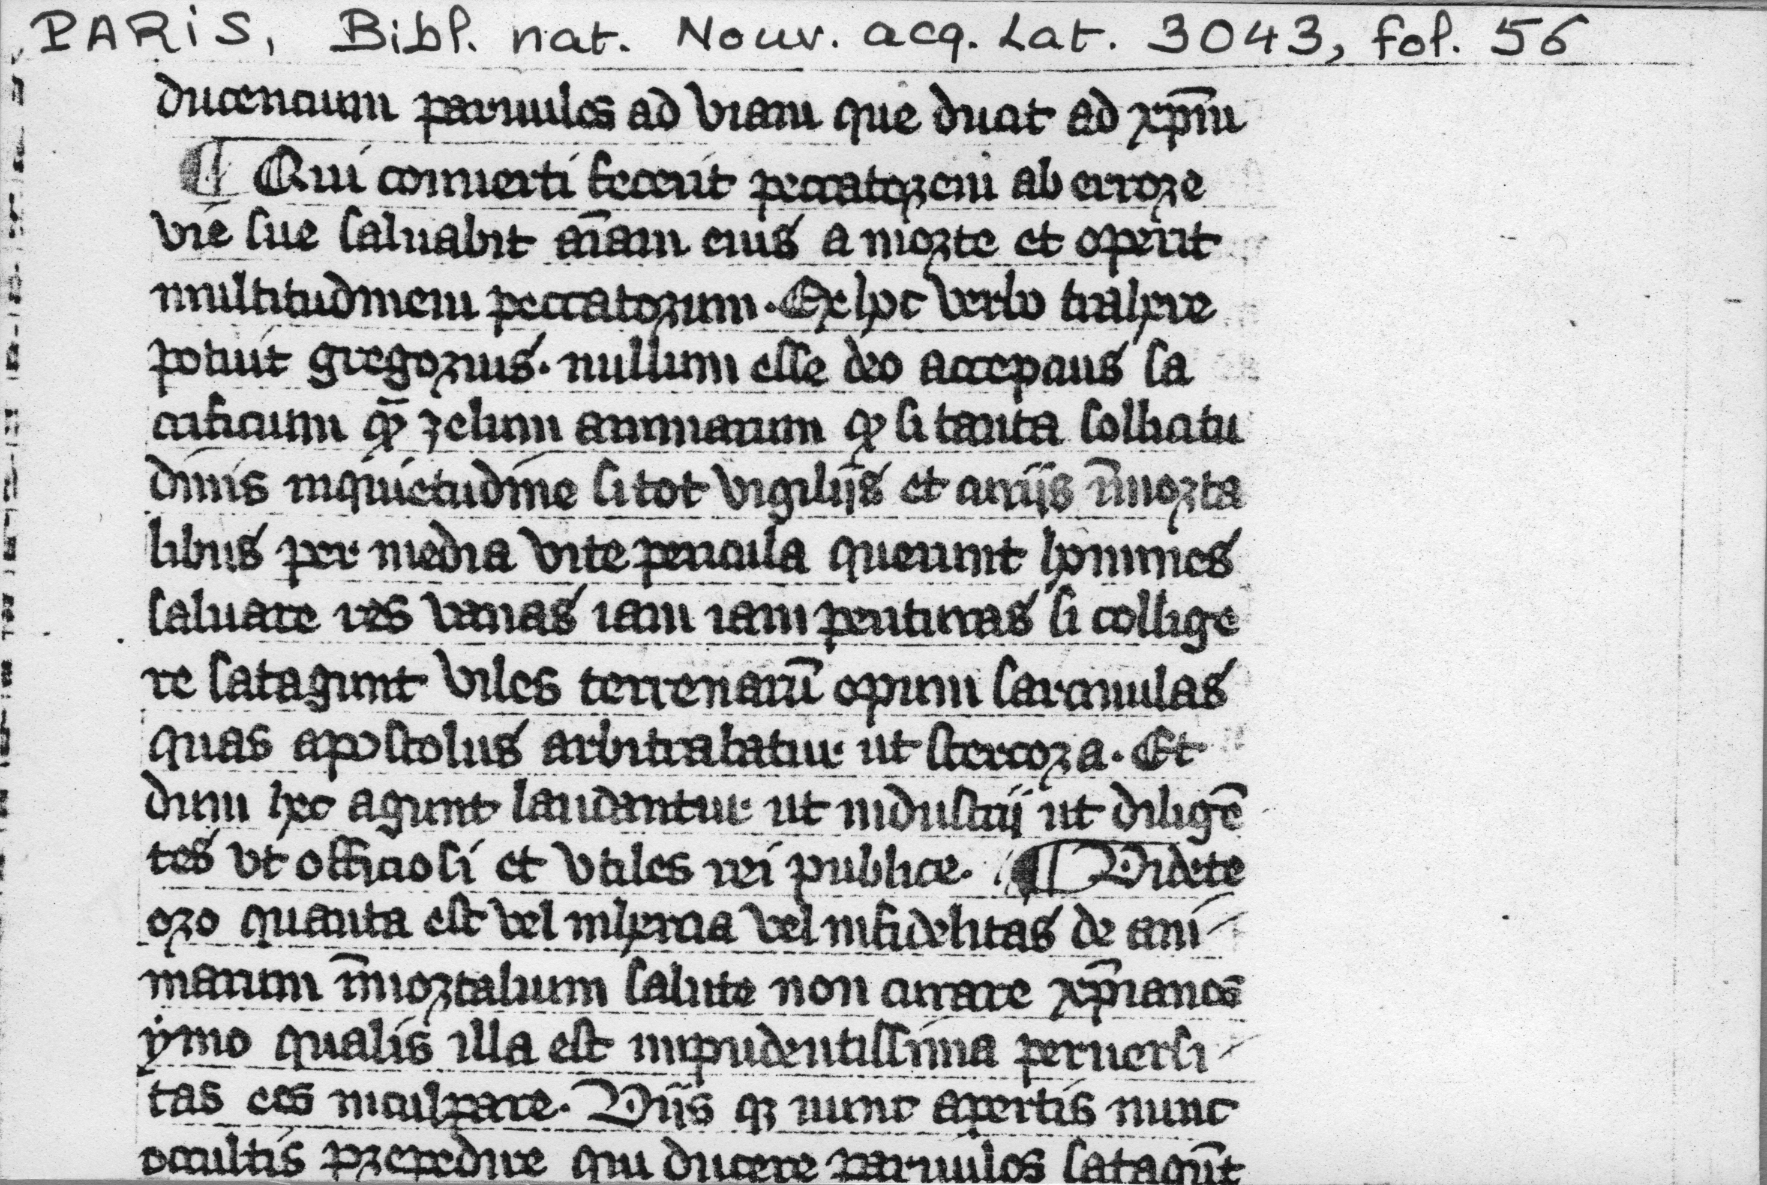 PARIS, Bibl. nat. Nouv. acq. Lat. 3043, fol. 56
ducentium paruulos ad viam que ducit ad xp̄m
¶ Qui conuerti fecerit peccatorem ab errore
vie sue saluabit aīam eius a morte et operit
multitudinem peccatorum. Ex hoc verbo trahere
potuit gregorius. nullum esse deo acceptius sa
crificium qȝ̄ zelum animarum qȝ si tanta sollicitu
dinis inquietudine si tot vigilijs et curijs īmorta
libus per media vite pericula querunt homines
saluare res vanas iam iam perituras si collige
re satagunt viles terrenarū opum sarcinulas
quas apostolus arbitrabatur ut stercora. Et
dum hec agunt laudantur ut industrij ut diligē
tes vt officiosi et vtiles rei publice. ¶ Videte
oro quanta est vel inhercia vel infidelitas de ani
marum īmortalium salute non curare xp̄ianos
ymo qualis illa est impudentissima peruersi
tas eos inculpare. Viis qȝ nunc apertis nunc
occultis prepedire qui ducere paruulos satagūt